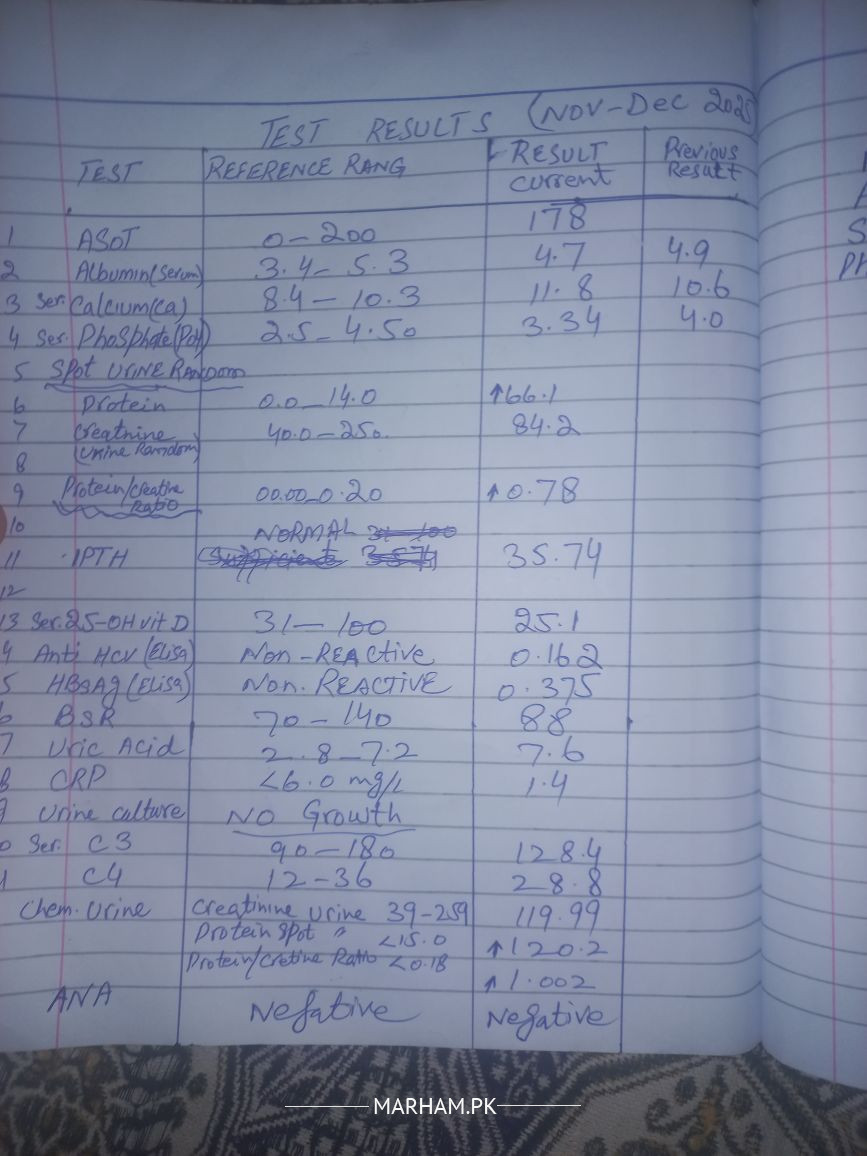 TEST RESULTS (NOV-Dec 2025
TEST REFERENCE RANG RESULT current Previous Result
1 ASOT 0-200 178
2 Albumin(serum) 3.4-5.3 4.7 4.9
3 Ser. Calcium(ca) 8.4-10.3 11.8 10.6
4 Ser. Phosphate(Po4) 2.5-4.50 3.34 4.0
5 SPOT URINE RANDOM
6 Protein 0.0-14.0 ↑66.1
7 Creatnine 40.0-250. 84.2
8 (Urine Random)
9 Protein/Creatine Ratio 00.00-0.20 ↑0.78
10 NORMAL 31-100
11 IPTH 35.74
12
13 Ser. 25-OH vit D 31-100 25.1
4 Anti HCV (Elisa) Non-REActive 0.162
5 HBsAg (Elisa) Non. REACTIVE 0.375
6 BSR 70-140 88
7 Uric Acid 2.8-7.2 7.6
8 CRP <6.0 mg/L 1.4
9 Urine culture NO Growth
0 Ser. C3 90-180 128.4
1 C4 12-36 28.8
Chem. Urine Creatinine Urine 39-259 119.99
Protein Spot " <15.0 ↑120.2
Protein/Cretine Ratio <0.18 ↑1.002
ANA Negative Negative
MARHAM.PK